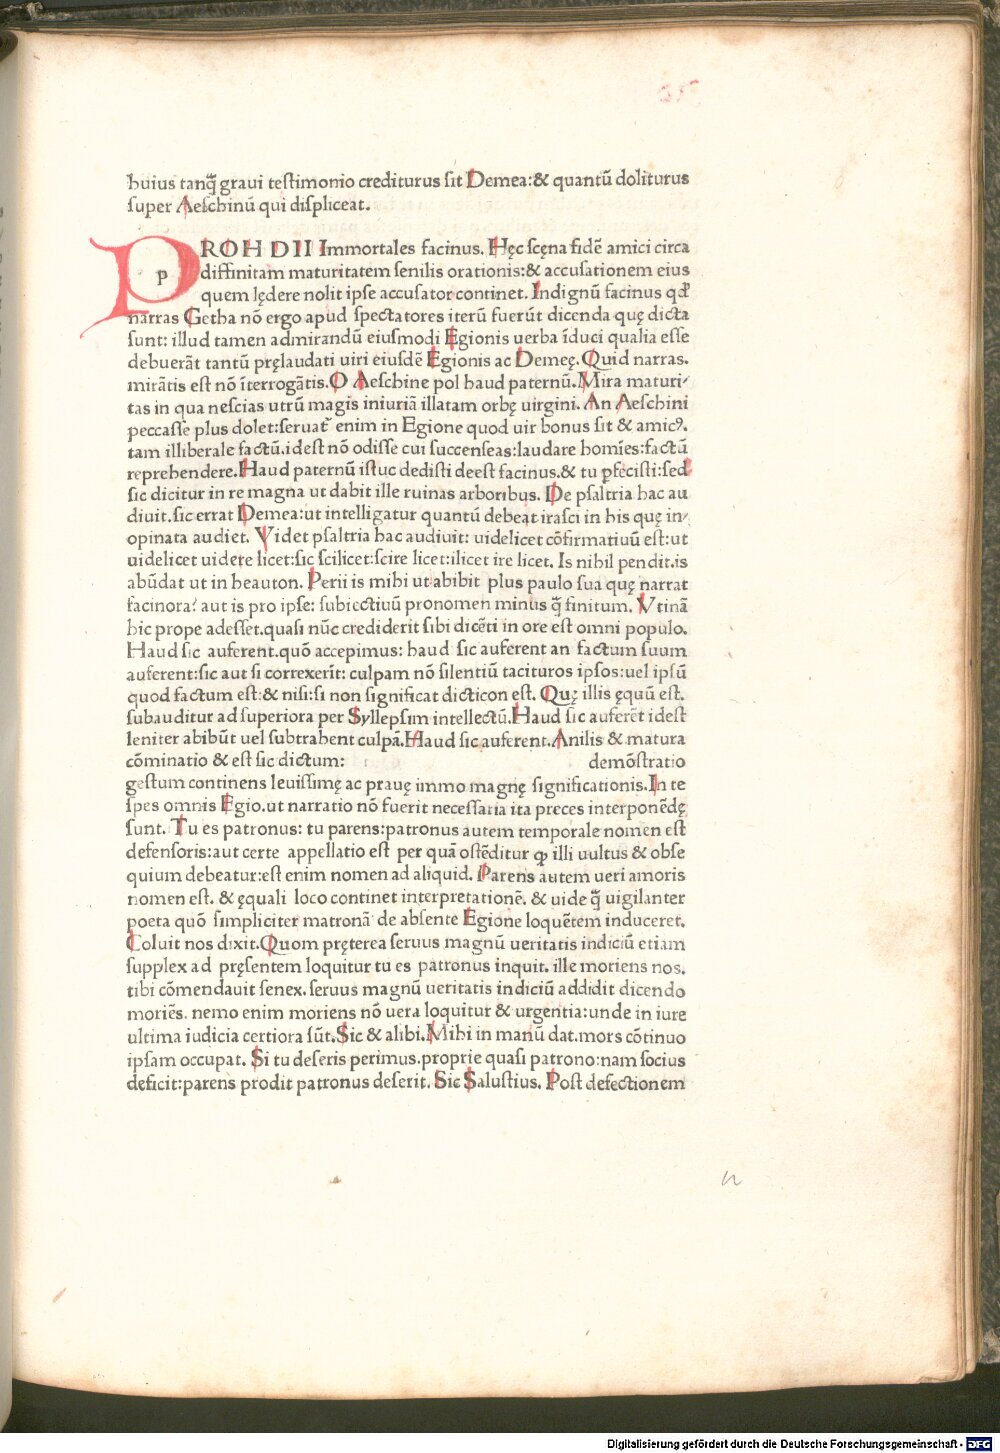 35
huius tanq̃ graui testimonio crediturus sit Demea:& quantũ doliturus
super Aeschinũ qui displiceat.
PROH DII Immortales facinus. Hęc scęna fidẽ amici circa
p diffinitam maturitatem senilis orationis:& accusationem eius
quem lędere nolit ipse accusator continet. Indignũ facinus qđ
narras Getha nõ ergo apud spectatores iterũ fuerũt dicenda quę dicta
sunt: illud tamen admirandũ eiusmodi Egionis uerba ĩduci qualia esse
debuerãt tantũ pręlaudati uiri eiusdẽ Egionis ac Demeę. Quid narras.
mirãtis est nõ ĩterrogãtis. O Aeschine pol haud paternũ. Mira maturi⸗
tas in qua nescias utrũ magis iniuriã illatam orbę uirgini. An Aeschini
peccasse plus dolet:seruat᷑ enim in Egione quod uir bonus sit & amicꝰ.
tam illiberale factũ.idest nõ odisse cui succenseas:laudare homĩes:factũ
reprehendere. Haud paternũ istuc dedisti deest facinus.& tu ꝑfecisti:sed
sic dicitur in re magna ut dabit ille ruinas arboribus. De psaltria hac au
diuit.sic errat Demea:ut intelligatur quantũ debeat irasci in his quę in⸗
opinata audiet. Videt psaltria hac audiuit: uidelicet cõfirmatiuũ est:ut
uidelicet uidere licet:sic scilicet:scire licet:ilicet ire licet. Is nihil pendit.is
abũdat ut in heauton. Perii is mihi ut abibit plus paulo sua quę narrat
facinora? aut is pro ipse: subiectiuũ pronomen minus q̃ finitum. Vtinã
hic prope adesset.quasi nũc crediderit sibi dicẽti in ore est omni populo.
Haud sic auferent.quõ accepimus: haud sic auferent an factum suum
auferent:sic aut si correxerĩt: culpam nõ silentiũ tacituros ipsos:uel ipsũ
quod factum est:& nisi:si non significat dicticon est. Quę illis ęquũ est.
subauditur ad superiora per Syllepsim intellectũ. Haud sic auferẽt idest
leniter abibũt uel subtrahent culpã. Haud sic auferent. Anilis & matura
cõminatio & est sic dictum: demõstratio
gestum continens leuissimę ac prauę immo magnę significationis. In te
spes omnis Egio.ut narratio nõ fuerit necessaria ita preces interponẽdę
sunt. Tu es patronus: tu parens:patronus autem temporale nomen est
defensoris:aut certe appellatio est per quã ostẽditur ꝙ illi uultus & obse
quium debeatur:est enim nomen ad aliquid. Parens autem ueri amoris
nomen est. & ęquali loco continet interpretationẽ. & uide q̃ uigilanter
poeta quõ simpliciter matronã de absente Egione loquẽtem induceret.
Coluit nos dixit. Quom pręterea seruus magnũ ueritatis indiciũ etiam
supplex ad pręsentem loquitur tu es patronus inquit. ille moriens nos.
tibi cõmendauit senex. seruus magnũ ueritatis indiciũ addidit dicendo
moriẽs. nemo enim moriens nõ uera loquitur & urgentia:unde in iure
ultima iudicia certiora sũt. Sic & alibi. Mihi in manũ dat.mors cõtinuo
ipsam occupat. Si tu deseris perimus.proprie quasi patrono:nam socius
deficit:parens prodit patronus deserit. Sic Salustius. Post defectionem
Digitalisierung gefördert durch die Deutsche Forschungsgemeinschaft - DFG